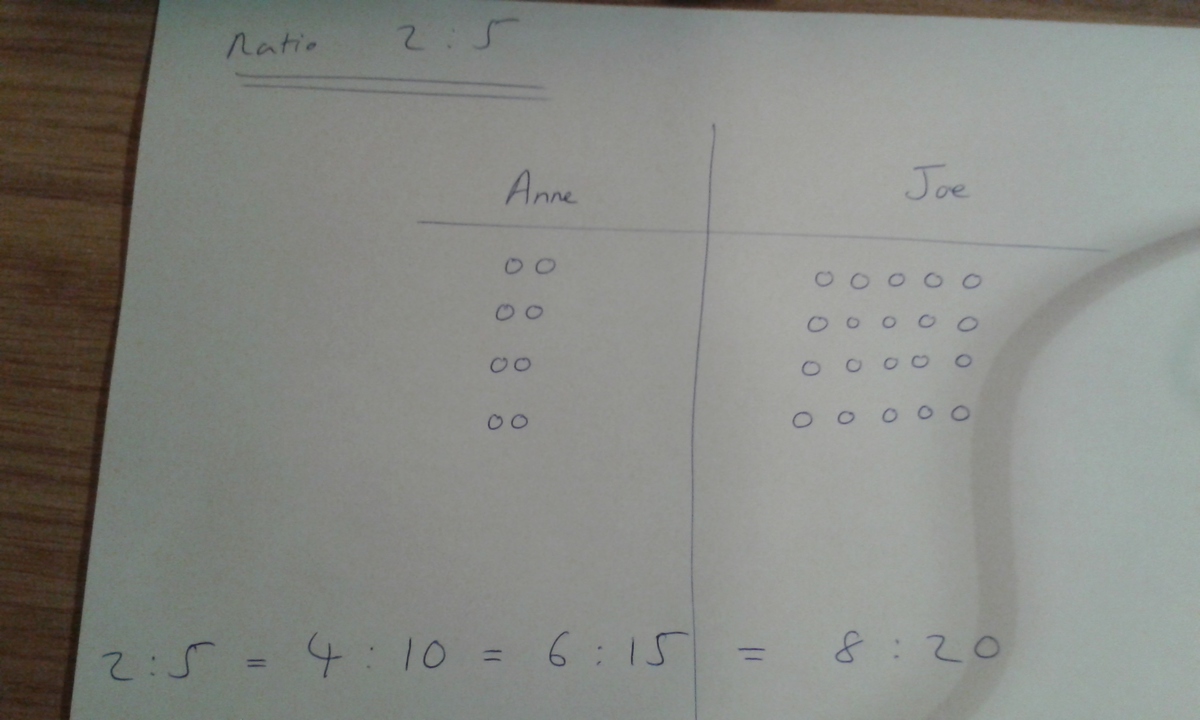 Ratio 2:5
Anne Joe
2:5 = 4:10 = 6:15 = 8:20